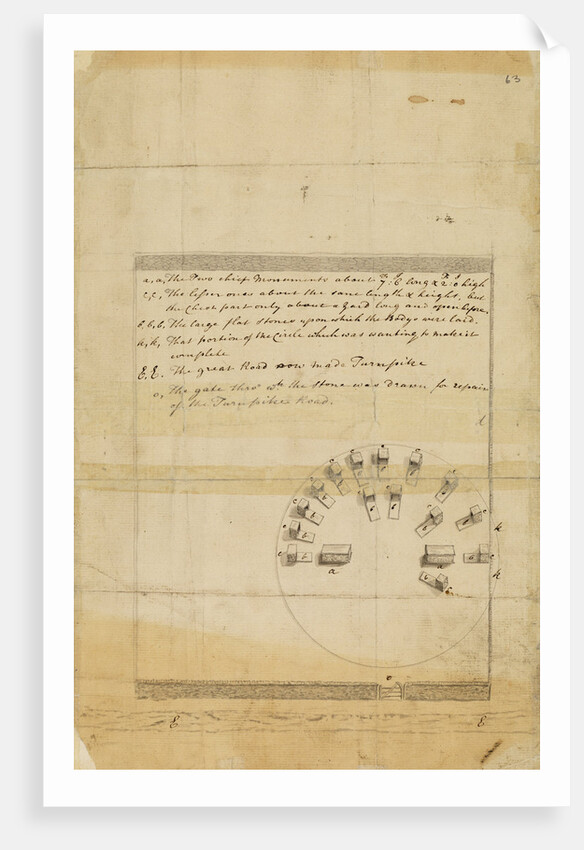 63
a, a, The Two chief Monuments about 7F:6I long & 2F:0I high
c, c, The lesser ones about the same length & height, but
the Chest part only about a yard long and open before.
b, b, b, The large flat stones upon which the Bodys were laid.
k, k, That portion of the Circle which was wanting to make it
compleate
E, E. The great Road now made Turnpike
o, The gate thro' wch the stone was Drawn for repair
of the Turnpike Road.
d
c c c c c c
c c c
b b b
c b b c k
c b a a b c k
b c
o
E E